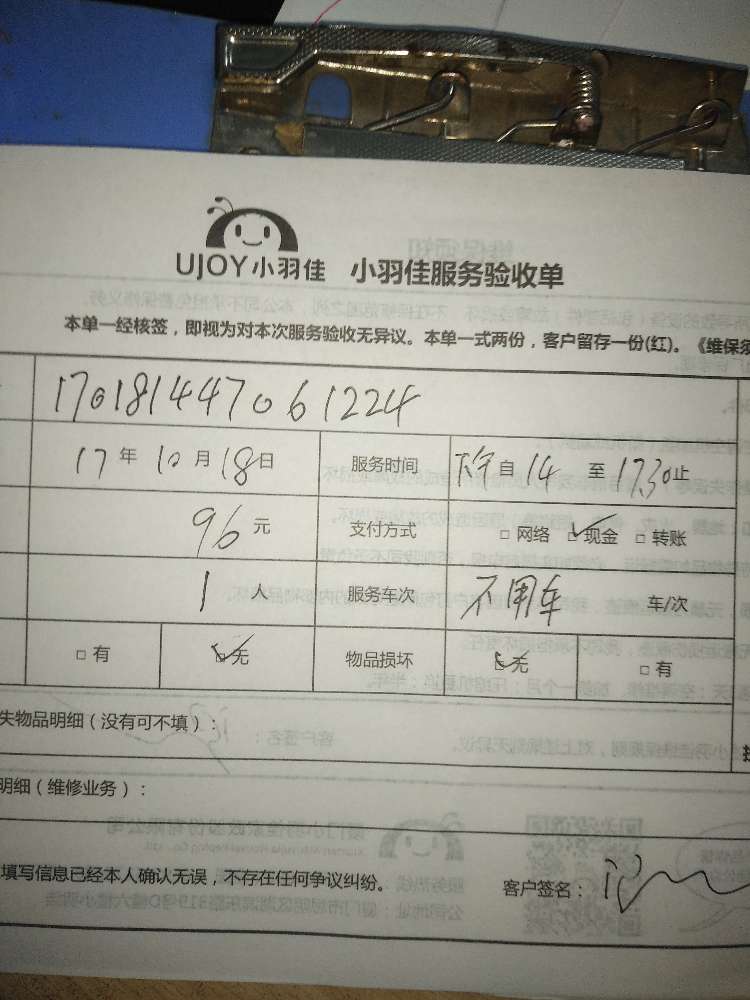 UJOY小羽佳 小羽佳服务验收单
本单一经核签，即视为对本次服务验收无异议。本单一式两份，客户留存一份(红)。《维保须
170181447061224
17年10月18日 服务时间 下午自14至17.30止
96元 支付方式 □网络 ☑现金 □转账
1人 服务车次 不用车 车/次
□有 ☑无 物品损坏 ☑无 □有
失物品明细（没有可不填）：
明细（维修业务）：
填写信息已经本人确认无误，不存在任何争议纠纷。 客户签名：